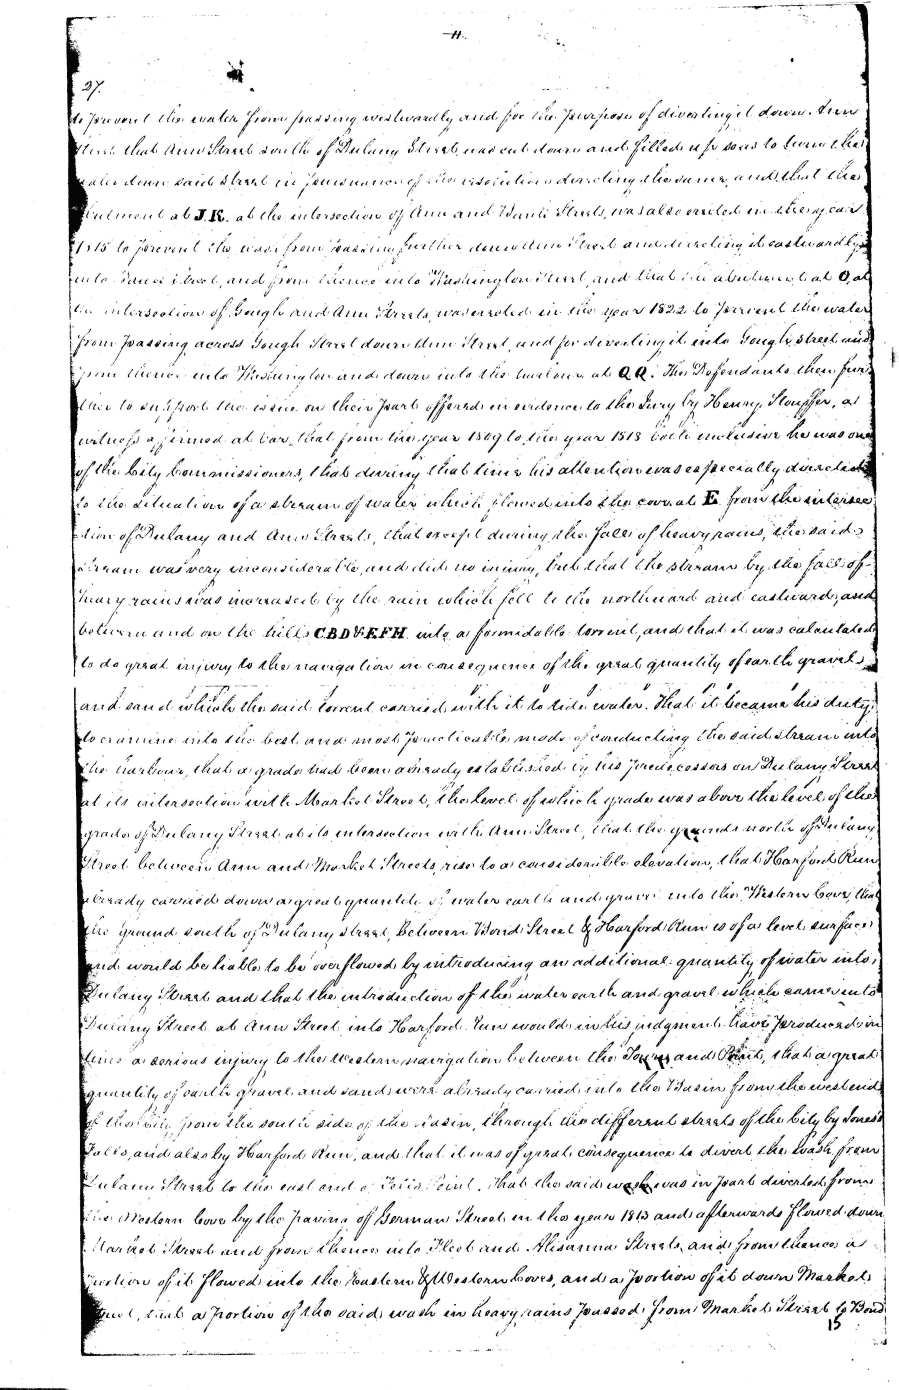 11.
27.
to prevent the water from passing westwardly and for the purpose of diverting it down Ann
Street that Ann Street south of Dulany Street was cut down and filled up so as to turn the
water down said street in pursuance of the resolution directing the same, and that the
abutment at J.K. at the intersection of Ann and Bank Streets, was also erected in the year
1815 to prevent the wash from passing further down Ann Street and directing it eastwardly
into Bank Street, and from thence into Washington Street, and that the abutment at O, at
the intersection of Gough and Ann Streets, was erected in the year 1822 to prevent the water
from passing across Gough Street down Ann Street, and for diverting it into Gough street and
from thence into Washington and down into the harbour at QQ. The Defendants then fur
ther to support the issue on their part offered in evidence to the Jury by Henry Stouffer, a
witness affirmed at bar, that from the year 1809 to the year 1818 both inclusive he was one
of the City Commissioners, that during that time his attention was especially directed
to the situation of a stream of water which flowed into the cove at E from the intersec
tion of Dulany and Ann Streets, that except during the falls of heavy rains, the said
stream was very inconsiderable, and did no injury, but that the stream by the fall of
heavy rains was increased by the rain which fell to the northward and eastward, and
between and on the hills CBDVEFH into a formidable torrent, and that it was calculated
to do great injury to the navigation in consequence of the great quantity of earth gravel
and sand which the said torrent carried with it to tide water. That it became his duty
to examine into the best and most practicable mode of conducting the said stream into
the harbour, that a grade had been already established by his predecessors on Dulany Street
at its intersection with Market Street, the level of which grade was above the level of the
grade of Dulany Street at its intersection with Ann Street, that the grounds north of Dulany
Street between Ann and Market Streets, rise to a considerable elevation, that Harford Run
already carried down a great quantity of water earth and gravel into the Western Cove, that
the ground south of Dulany street, between Bond Street & Harford Run is of a level surface
and would be liable to be overflowed by introducing an additional quantity of water into
Dulany Street and that the introduction of the water earth and gravel which came into
Dulany Street at Ann Street into Harford Run would in his judgment have produced in
time a serious injury to the western navigation between the Town and Point, that a great
quantity of earth gravel and sand were already carried into the Basin from the west end
of the City from the south side of the Basin, through the different streets of the City by Jones's
Falls, and also by Harford Run, and that it was of great consequence to divert the wash from
Dulany Street to the east end of Fells Point. That the said wash was in part diverted from
the Western Cove by the paving of German Street in the year 1813 and afterwards flowed down
Market Street and from thence into Fleet and Alisanna Streets, and from thence a
portion of it flowed into the Eastern & Western Coves, and a portion of it down Market
Street, that a portion of the said wash in heavy rains passed from Market Street to Bond
15